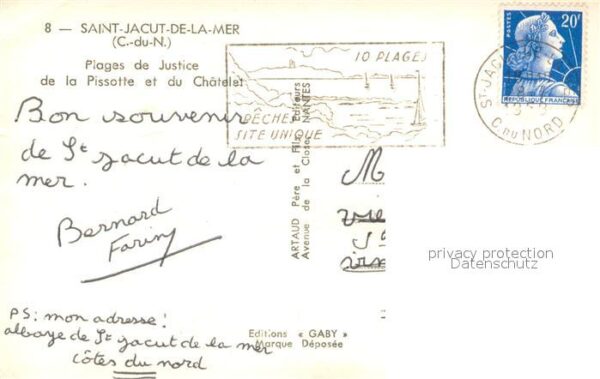 8 — SAINT-JACUT-DE-LA-MER
(C.-du-N.)
Plages de Justice
de la Pissotte et du Châtelet
Bon souvenir
de St Jacut de la
mer.
Bernard
Fariny
PS: mon adresse:
abbaye de St Jacut de la mer
côtes du nord
10 PLAGES
PÊCHES
SITE UNIQUE
ARTAUD Père et Fils Éditeurs
Avenue de la Close NANTES
Editions « GABY »
Marque Déposée
POSTES
20F
REPUBLIQUE FRANÇAISE
C. DU NORD
M
privacy protection
Datenschutz